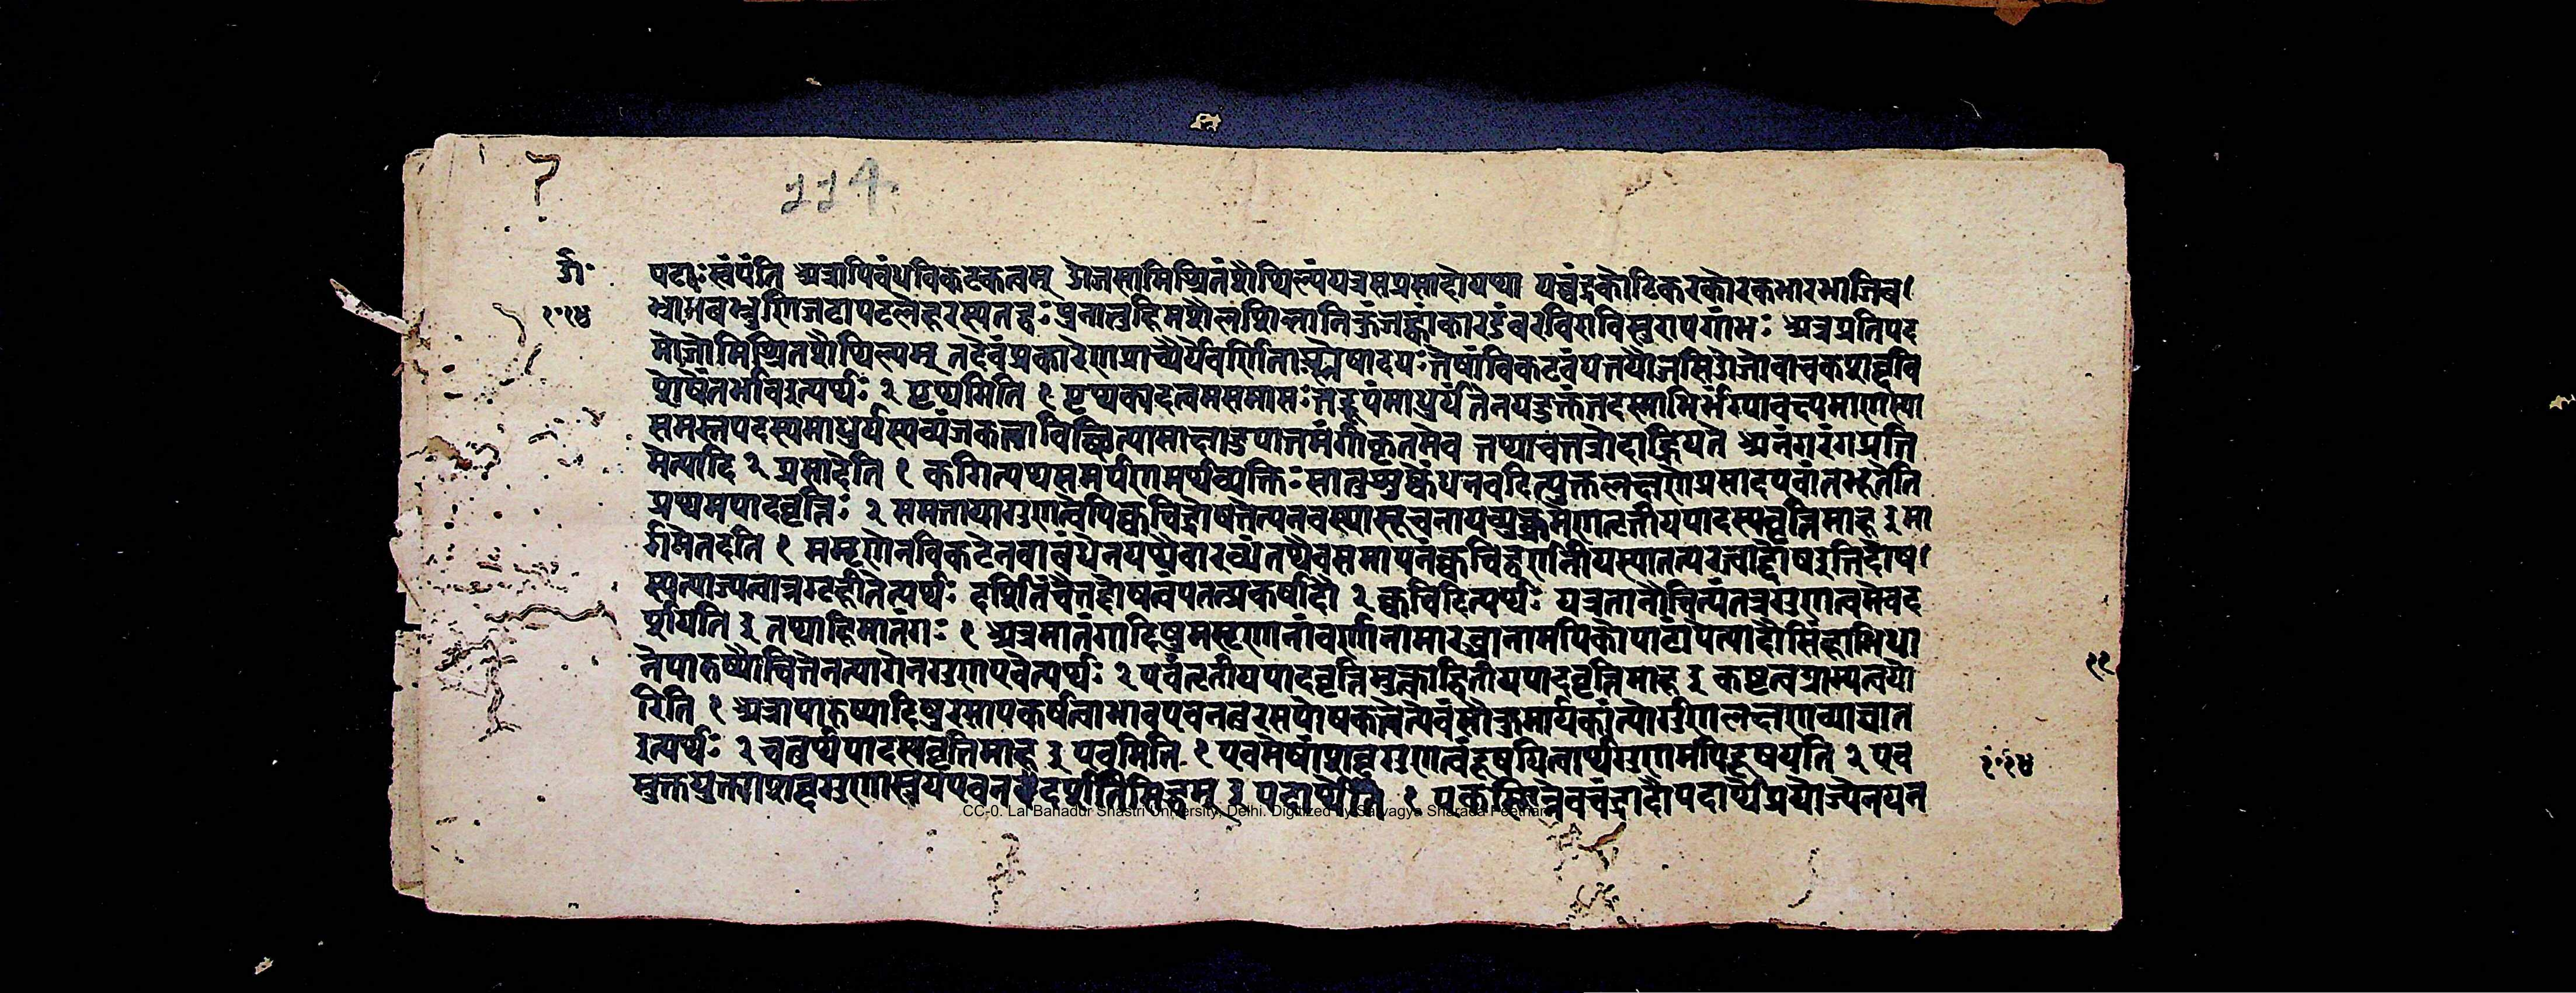 7
114.
पटाः स्वंपंति अत्रापिबंधविकटकत्वम् ओजसामिश्रितंशैथिल्यंयत्रसप्रसादोयथा यच्चंद्रकोटिकरकोरकभारभाजिब
भ्रामबभ्रुणिजटापटलेहरस्य तद्वः पुनातुहिमशैलशिलानिकुंजझाकारडंबरविराविसुरापगांभः अत्रप्रतिपद
मोजोमिश्रितशैथिल्यम् तदेवंप्रकारेणप्राच्यैर्येवर्णिताश्श्लेषादयः तेषांविकटबंधतयौजसिओजोवाचकशब्दवि
शेषेंतर्भावइत्यर्थः २ पृथगिति १ पृथक्पदत्वमसमासः तद्रूपंमाधुर्यं तेनयदुक्तंतदस्माभिर्भंग्यावक्ष्यमाणस्या
समस्तपदस्यमाधुर्यस्यव्यंजकत्वाविच्छित्यामाक्षादुपात्तमंगीकृतमेव तथावत्तत्रोदाह्रियते अनंगरंगप्रति
मेत्यादि २ प्रसादेति १ कगित्यर्थसमर्पणमर्थव्यक्तिः सातुशुष्केंधनवदित्युक्तलक्षणेप्रसादएवांतर्भूतेति
प्रथमपादवृत्तिः २ समतायागुणत्वेपिक्वचिद्दोषत्तेत्यनवस्थासूचनायव्युत्क्रमेणतृतीयपादस्यवृत्तिमाह ३ मा
र्गभेतदति १ मसृणेनविकटेनवाबंधेनयथैवारब्धंतथैवसमापनंक्वचिद्वर्णनीयस्यातत्परत्वाद्दोषइतिदोष
स्यत्याज्यत्वान्नगृहीतेत्यर्थः दर्शितंचैतद्दोषत्वंपतत्प्रकर्षादौ २ क्वचिदित्यर्थः यत्रतानौचित्यंतत्रगुणत्वमेवद
र्शयति ३ तथाहिमातंगः १ अत्रमातंगादिषुमसृणानांवर्णानामारब्धानामपिकोपाटोपेत्यादौसिंहाभिधा
नेपारुष्यौचित्तेनत्यागेनगुणएवेत्यर्थः २ एवंतृतीयपादवृत्तिमुक्त्वाद्वितीयपादवृत्तिमाह ३ कष्टत्वग्राम्यत्वयो
रिति १ अत्रापारुष्यादिषुरसापकर्षत्वाभावएवनतुरसपोषकत्वेत्येवंसौकुमार्यकांत्योर्गुणलक्षणव्याघात
इत्यर्थः २ चतुर्थपादस्यवृत्तिमाह ३ एवमिति १ एवमेषांशब्दगुणत्वंदूषयित्वार्थगुणमपिदूषयति २ एव
मुक्तयुक्त्याशब्दगुणास्त्रयएवनतुदशेतिसिद्धम् ३ पदार्थेति १ एकस्मिन्नेवचंद्रादौपदार्थेप्रयोज्येनयन
CC-0. Lal Bahadur Shastri University, Delhi. Digitized by Sarvagya Sharada Peetham